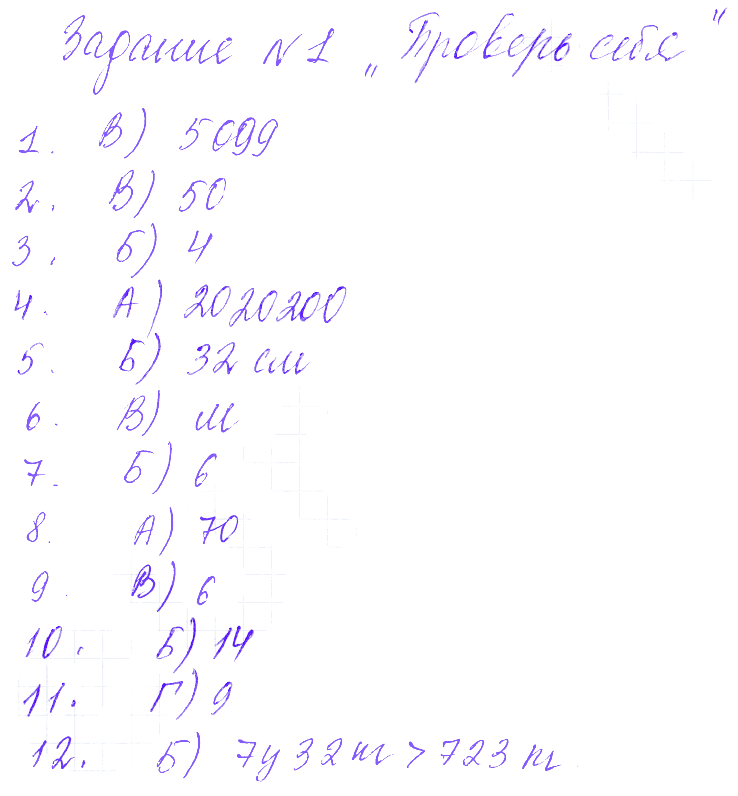 Задание №1 „Проверь себя"
1. В) 5099
2. В) 50
3. Б) 4
4. А) 2020200
5. Б) 32 см
6. В) м
7. Б) 6
8. А) 70
9. В) 6
10. Б) 14
11. Г) 9
12. Б) 7ц 32кг > 723 кг